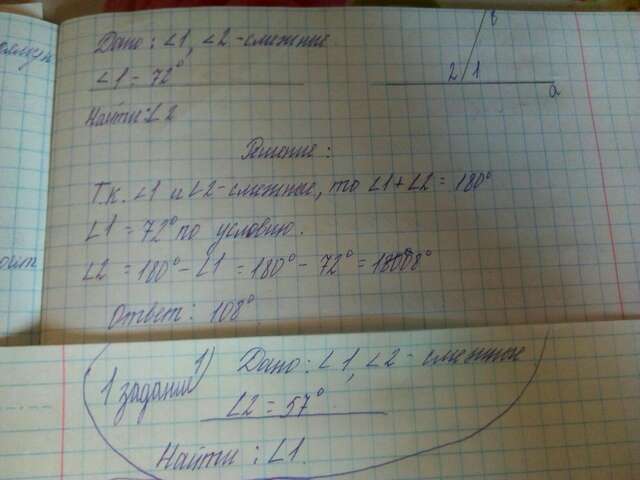 Дано: ∠1, ∠2-смежные
∠1 = 72°
Найти: ∠2
в
2 1
а
Решение:
Т.к. ∠1 и ∠2-смежные, то ∠1+∠2 = 180°
∠1 = 72° по условию.
∠2 = 180° - ∠1 = 180° - 72° = 108°
Ответ: 108°
1 задание 1) Дано: ∠1, ∠2 - смежные
∠2 = 57°
Найти: ∠1.